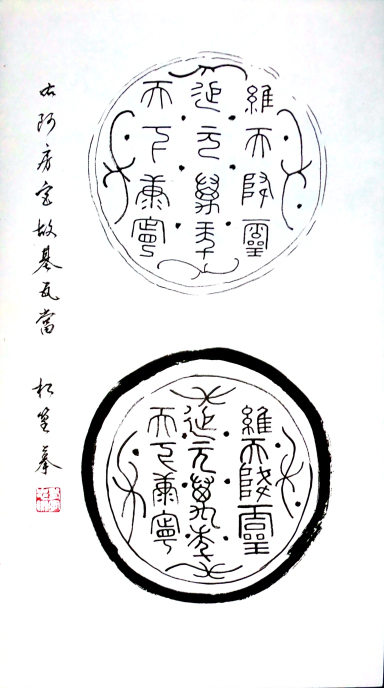 維天降靈
延元萬年
天下康寧
維天降靈
延元萬年
天下康寧
右阿房宮故基瓦當
松 摹